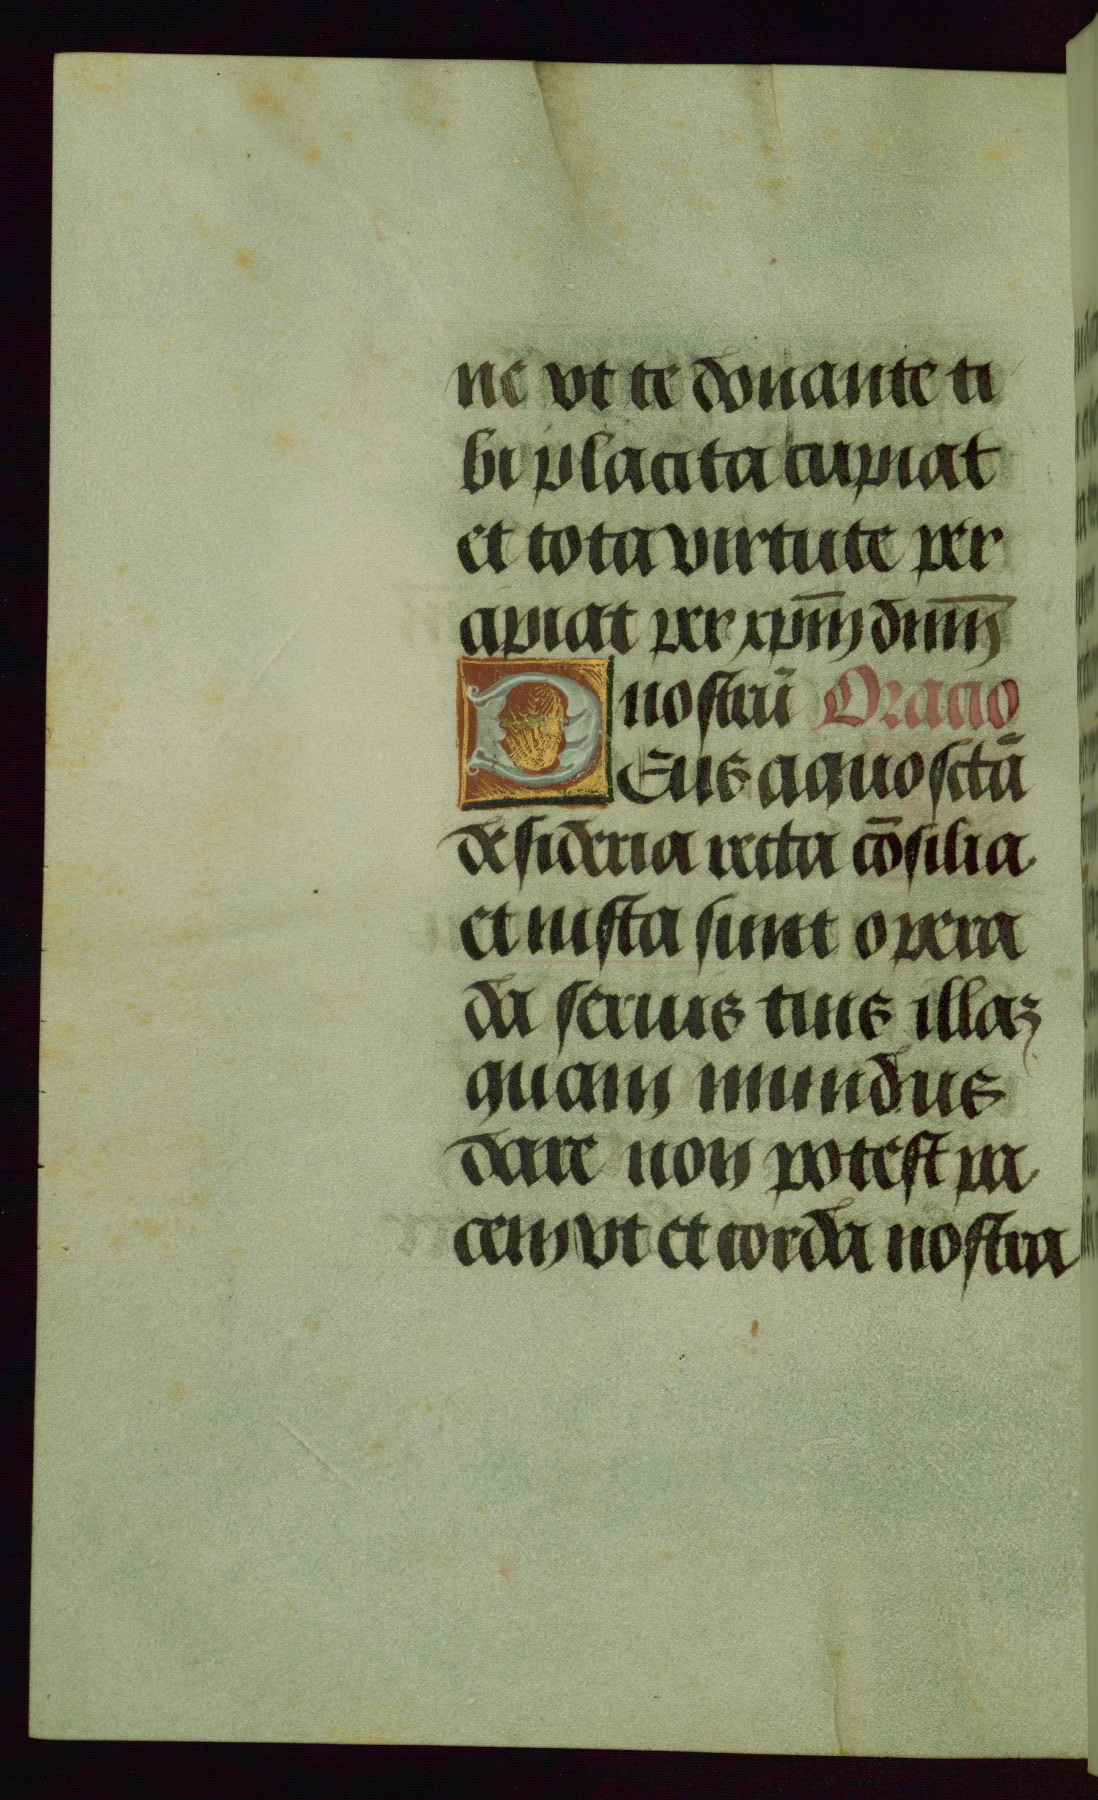 ne vt te donante ti
bi placita cupiat
et tota virtute per
apiat per xp̄m dn̄m
nostrū Oracio
Deus a quo sctā
desideria recta cōsilia
et iusta sunt opera
da seruis tuis illaz
quam mundus
dare non potest pa
cem vt et corda nostra